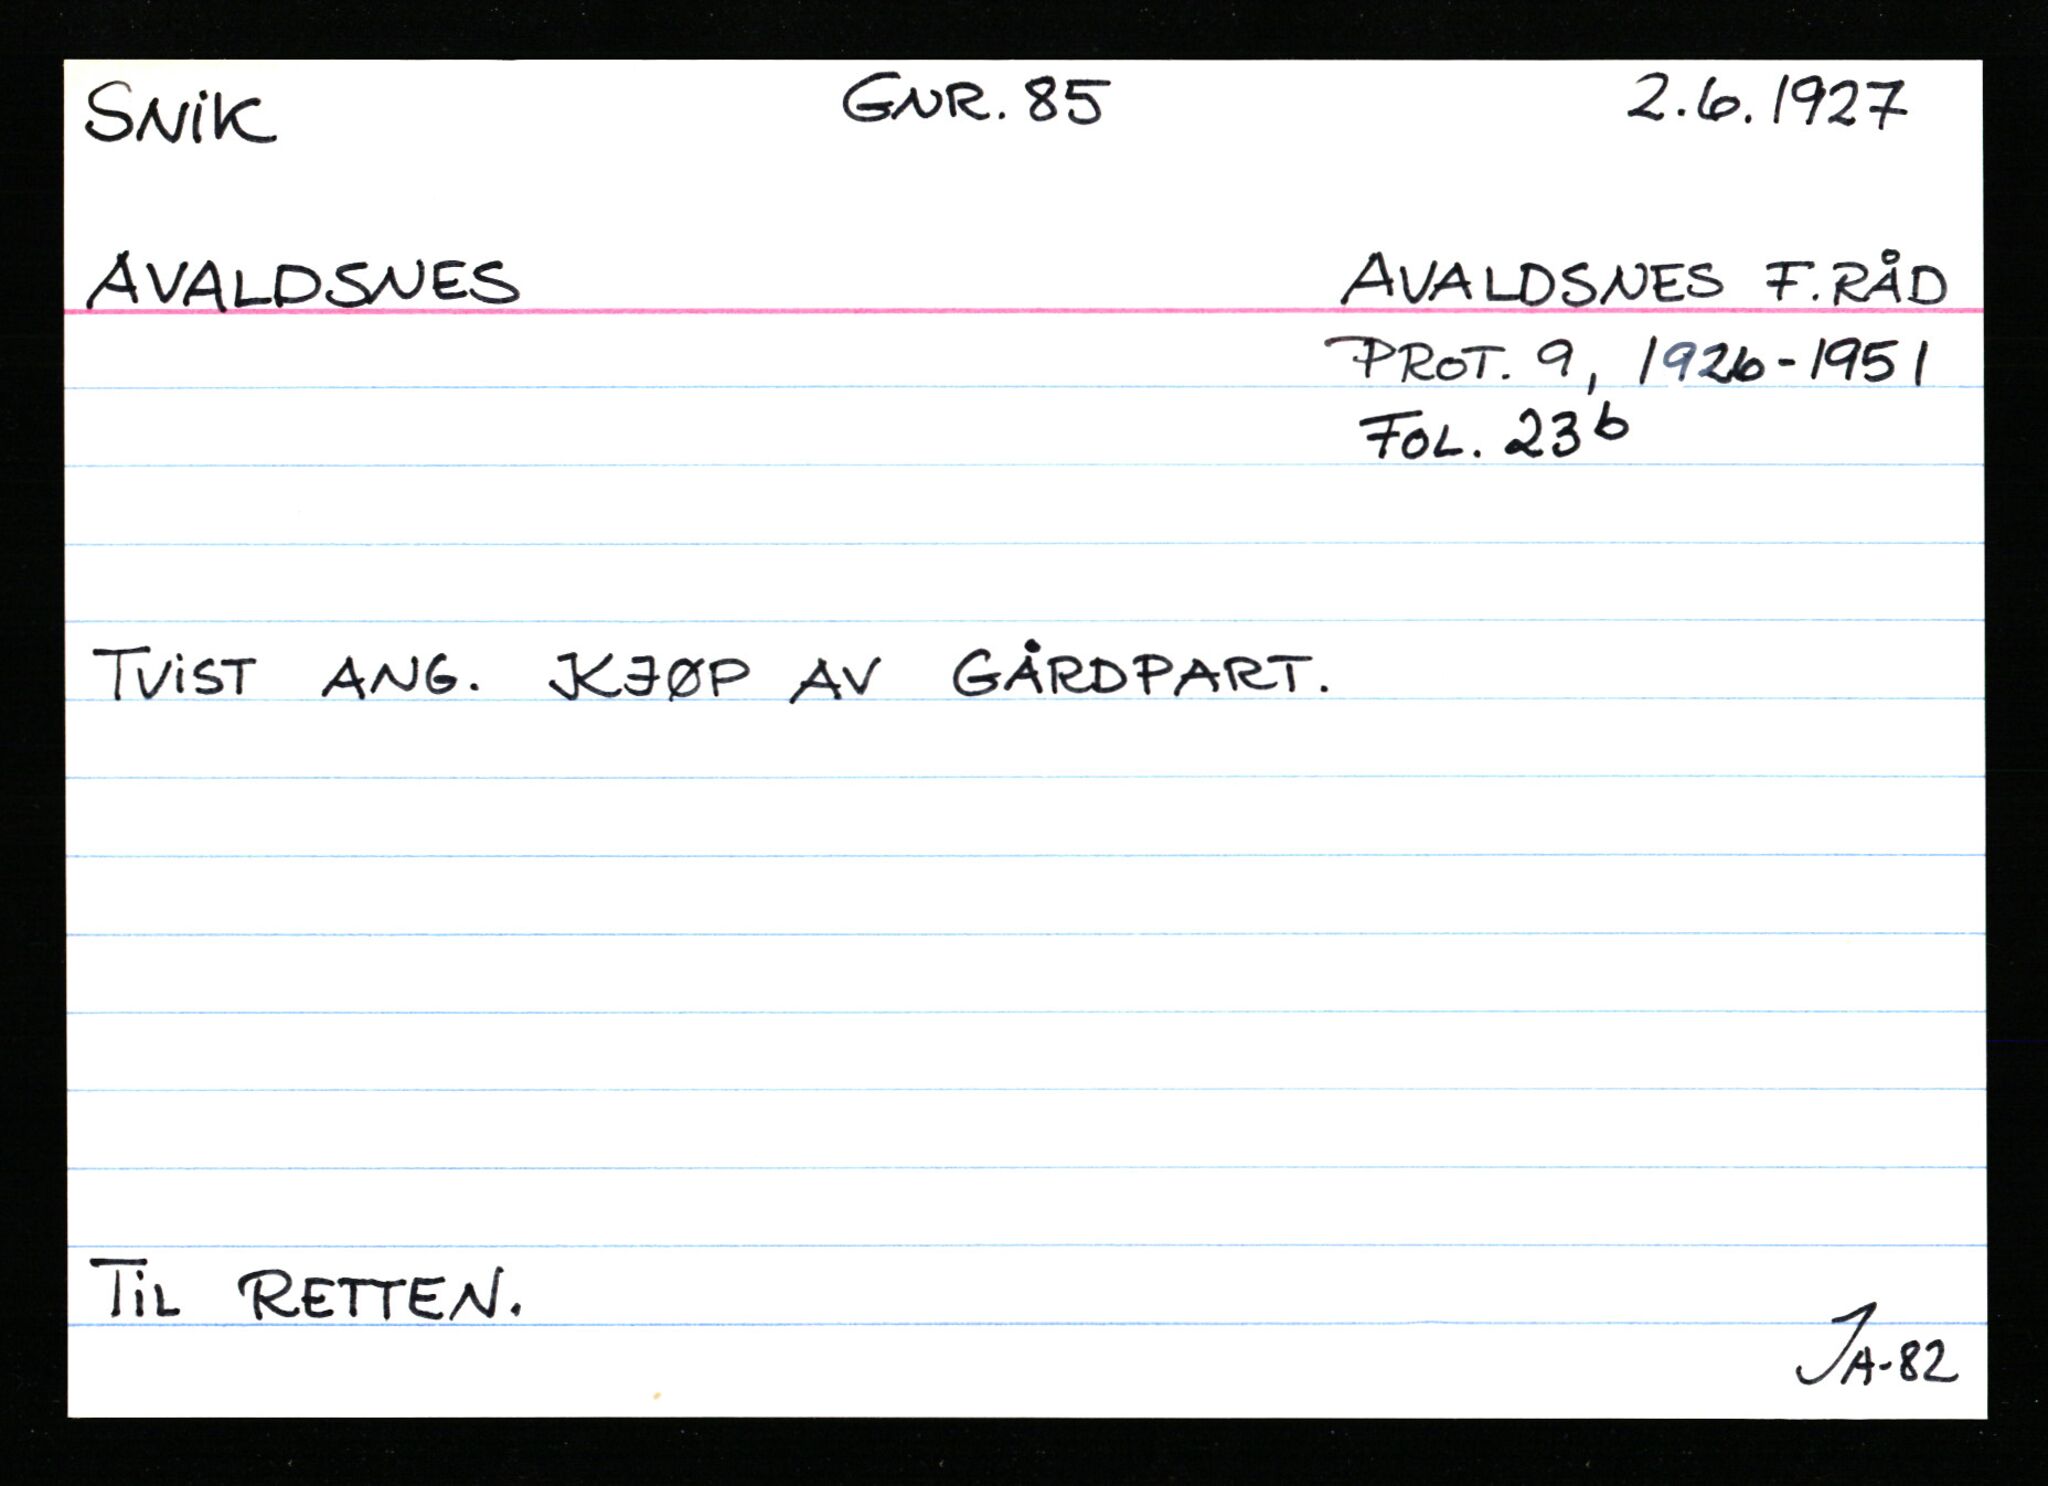 SNiK GNR. 85 2.6.1927
AVALDSNES AVALDSNES F.RÅD
PROT. 9, 1926-1951
FOL. 23b
TViST ANG. KJØP AV GÅRDPART.
TiL RETTEN.
JA-82